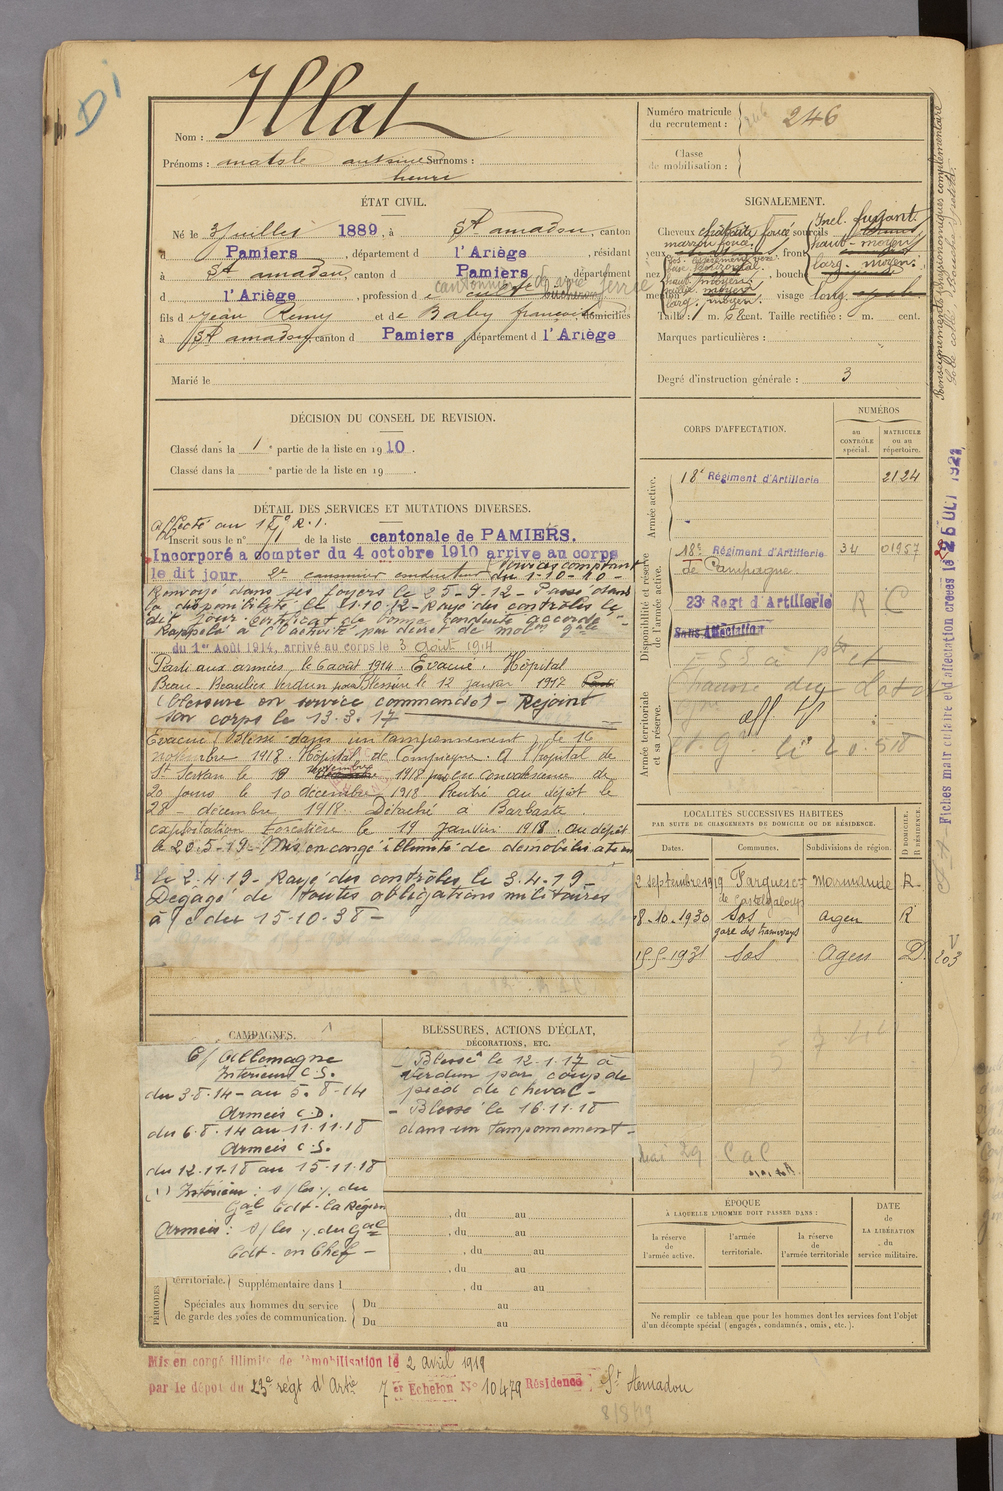 Di
Nom : Illat
Prénoms : Antoine Surnoms :
henri
Numéro matricule
du recrutement : 246
Classe
de mobilisation :
ÉTAT CIVIL.
Né le 3 juillet 1889, à St amadou, canton
d Pamiers, département d l'Ariège, résidant
à St amadou, canton d Pamiers, département
d l'Ariège, profession d cultivateur
fils d Jean Remy et de Baby françoise, domiciliés
à St amadou, canton d Pamiers, département d l'Ariège
Marié le
SIGNALEMENT.
Cheveux châtain foncé sourcils
marron foncé.
yeux, front
Incl. fuyant.
haut - moyen
larg. moyen.
nez, bouche
horizontal.
haut. moyen
saillie moyen
larg. moyen.
menton visage long.
Taille : 1 m. 62 cent. Taille rectifiée : m. cent.
Marques particulières :
Degré d'instruction générale : 3
Renseignements physionomiques complémentaires
DÉCISION DU CONSEIL DE REVISION.
Classé dans la 1e partie de la liste en 1910.
Classé dans la e partie de la liste en 19 .
CORPS D'AFFECTATION.
NUMÉROS
au
CONTRÔLE
spécial.
MATRICULE
ou au
répertoire.
Armée active.
18e Régiment d'Artillerie 2124
Disponibilité et réserve
de l'armée active.
18e Régiment d'Artillerie 34 01957
de Campagne.
23e Regt d'Artillerie R C
Sans Affectation
Armée territoriale
et sa réserve.
Fiches matriculaire et d'affectation créées le 26 OCT 1921
DÉTAIL DES SERVICES ET MUTATIONS DIVERSES.
Affecté au R. I.
Inscrit sous le no de la liste cantonale de PAMIERS.
Incorporé a compter du 4 octobre 1910 arrive au corps
le dit jour. 2e canonnier conducteur Services comptant
du 1-10-10 -
Renvoyé dans ses foyers le 25-9-12 - Passé dans
la disponibilité le 1-10-12 - Rayé des contrôles le
dit jour. Certificat de bonne conduite accordé -
Rappelé à l'activité par décret de mobon gale
du 1er Août 1914, arrivé au corps le 3 Août 1914
Parti aux armées, le 6 août 1914. Evacué. Hôpital
Beau-Beaulieu Verdun pour Blessure le 12 janvier 1917
(blessure en service commandé) - Rejoint
son corps le 13.3.17
Evacué (blessé dans un tamponnement) le 16
novembre 1918. Hôpital de Compiègne. A l'hôpital de
St Servan le 19 novembre 1918 pour en convalescence de
20 jours le 10 décembre 1918 Rentré au dépôt le
28 décembre 1918. Détaché à Barbaste
exploitation forestière le 19 janvier 1918. au dépôt
le 20.5.19 - Mis en congé illimité de démobilisation
le 2.4.19 - Rayé des contrôles le 3.4.19 -
Dégagé de toutes obligations militaires
à /c du 15-10-38 -
LOCALITÉS SUCCESSIVES HABITÉES
PAR SUITE DE CHANGEMENTS DE DOMICILE OU DE RÉSIDENCE.
Dates. Communes. Subdivisions de région. D DOMICILE. R RÉSIDENCE.
2 septembre 1919 Fargues et Marmande R.
de Casteljaloux
8.10.1930 Sos Agen R
gare des tramways
1931 Sos Agen D.
V
203
CAMPAGNES.
C/ Allemagne
Intérieur C.S.
du 3.8.14 - au 5.8.14
Armées C.D.
du 6.8.14 au 11.11.18
Armées C.S.
du 12.11.18 au 15.11.18
(1) Intérieur : du
Gal Cdt. la Région
Armées : du Gal
Cdt. en Chef -
BLESSURES, ACTIONS D'ÉCLAT,
DÉCORATIONS, ETC.
Blessé le 12.1.17 à
Verdun par coup de
pied de cheval -
- Blessé le 16.11.18
dans un tamponnement -
, du au
, du au
, du au
, du au
PÉRIODES
territoriale. Supplémentaire dans l , du au
Spéciales aux hommes du service
de garde des voies de communication. Du au
Du au
ÉPOQUE
À LAQUELLE L'HOMME DOIT PASSER DANS :
la réserve
de
l'armée active.
l'armée
territoriale.
la réserve
de
l'armée territoriale
DATE
de
LA LIBÉRATION
du
service militaire.
Ne remplir ce tableau que pour les hommes dont les services font l'objet
d'un décompte spécial (engagés, condamnés, omis, etc.).
Mis en congé illimité de démobilisation le 2 avril 1919
par le dépot du 23e régt d'Artie 7er Echelon No 10479 Résidence St Amadou
8/8/19